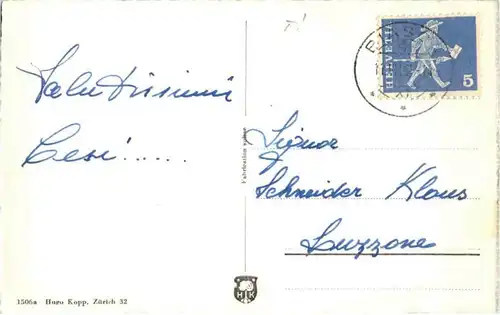 Salutissimi
Cesi.....
HELVETIA
5
Signor
Schneider Klaus
Luzzone
Fabrication suisse
HK
1506a - Hugo Kopp, Zürich 32